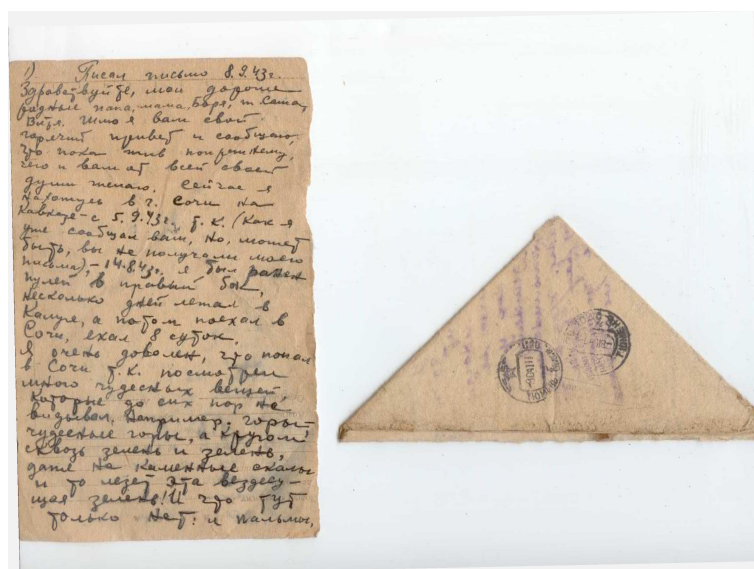 1) Писал письмо 8.9.43г.
Здравствуйте, мои дорогие
родные папа, мама, Боря, т. Саша,
Витя. Шлю я вам свой
горячий привет и сообщаю,
что пока жив попрежнему,
чего и вам от всей своей
души желаю. Сейчас я
нахожусь в г. Сочи на
Кавказе - с 5.9.43г. т.к. (как я
уже сообщал вам, но, может
быть, вы не получали моего
письма), - 14.8.43г. я был ранен
пулей в правый бок,
несколько дней лежал в
Калуге, а потом поехал в
Сочи, ехал 8 суток.
Я очень доволен, что попал
в Сочи т.к. посмотрел
много чудесных вещей,
которые до сих пор не
видывал. Например: горы -
чудесные горы, а кругом
сквозь зелень и зелень,
даже на каменные скалы
и то лезет эта вездесу-
щая зелень! И что тут
только нет: и пальмы,